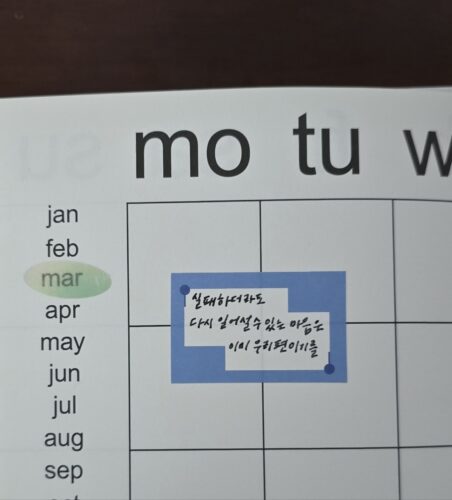 mo tu w
jan
feb
mar
apr
may
jun
jul
aug
sep
실패하더라도
다시 일어설 수 있는 마음은
이미 우리 편이기를